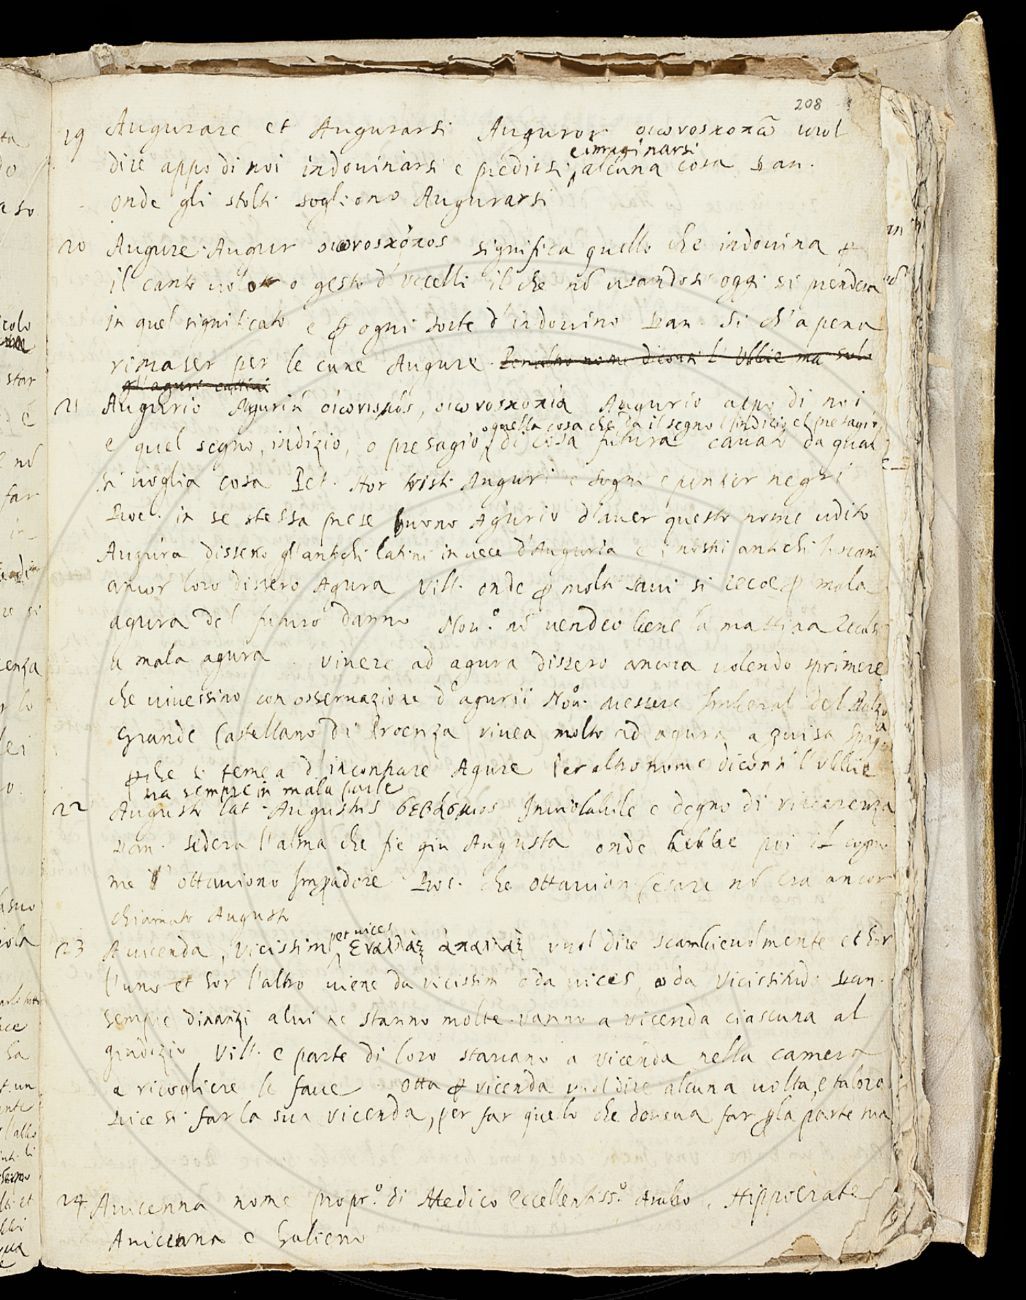 208
19 Augurare et Augurarsi Auguror οιωνοσκοπῶ vuol
dire appo di noi indovinarsi e predirsi, e imaginarsi alcuna cosa Dan.
onde gli stolti sogliono Augurarsi
20 Augure. Augur οιωνοσκόπος significa quello che indovina ꝑ
il canto volo o gesto d'uccelli il che nō usandosi oggi si prenderà
in quel significato e ꝑ ogni sorte d'indovino Dan. Si ch'a pena
rimaser per le cune Augure. Per altro nome diconsi l'Ubbie ma solo
gl'aguri cattivi
21 Augurio Agurio οἰωνισμός, οιωνοσκοπία Augurio appo di noi
è quel segno, indizio, o presagio, o quella cosa che da il segno l'indicio el presagio, di cosa futura cavato da qual
si voglia cosa Pet. Hor tristi Auguri e sogni e pensier negri
Boc. in se stessa prese buono Agurio d'aver questo nome udito
Augura dissero gl'antichi latini in vece d'Auguria e i nostri antichi toscani
ancor loro dissero Agura Vill. onde ꝑ molti savi si recoe ꝑ mala
agura del futuro danno Nov.º nō vendeo bene la mattina recolsi
a mala agura. vivere ad agura dissero ancora volendo sprimere
che vivessino con osservazione d'agurii Nov. Messere Imberal del Balzo
grande Castellano di Proenza vivea molto ad agura a guisa Spagnuola
ꝑche si temea d'incontrare Agure Per altro nome diconsi l'Ubbie
ma sempre in mala parte
22 Augusto lat. Augustus σεβάσμιος Inviolabile e degno di riverenza
Dan. sederà l'alma che fie giu Augusta onde hebbe poi il cogno
me Ottaviano Imperadore Boc. che Ottavian Cesare nō era ancor
chiamato Augusto
23 Avicenda, Vicissim, per vices ἐναλλὰξ ἀπαλλὰξ vuol dire scambievolmente et hor
l'uno et hor l'altro viene da vicissim o da vices, o da Vicissitudo Dan.
Sempre dinanzi a lui ne stanno molte. vanno a vicenda ciascuna al
giudizio, Vill. e parte di loro stavano a vicenda nella camera
a ricogliere le fave Otta ꝑ vicenda vuol dire alcuna volta, e talora
Dicesi far la sua vicenda, per far quello che doveva far ꝑ la parte sua
24 Avicenna nome propr.º di Medico eccellentiss.º Arabo. Hippocrate
Avicenna e Galieno